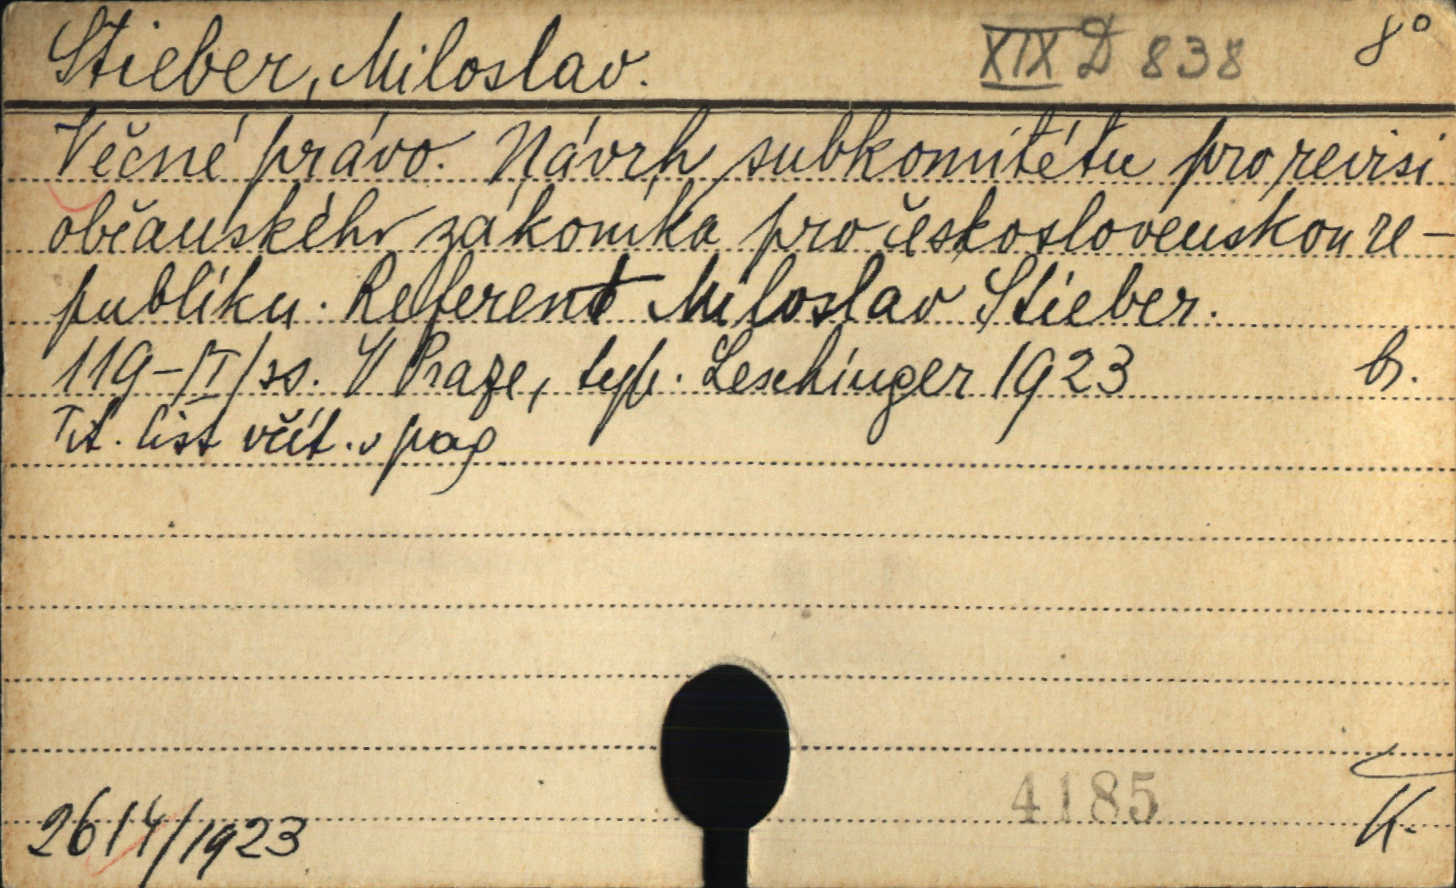 Stieber, Miloslav. XIX D 838 8°
Věcné právo. Návrh subkomitétu pro revisi
občanského zákoníka pro československou re-
publiku. Referent Miloslav Stieber.
119-/I/ss. V Praze, typ. Leschinger 1923 br.
Tit. list včít. v pag
4185
2614/1923 K.